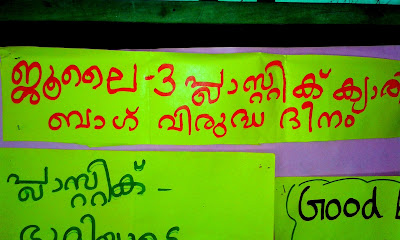 ജൂലൈ-3 പ്ലാസ്റ്റിക് ക്യാരി
ബാഗ് വിരുദ്ധ ദിനം
പ്ലാസ്റ്റിക് -
ഭൂമിയുടെ
Good